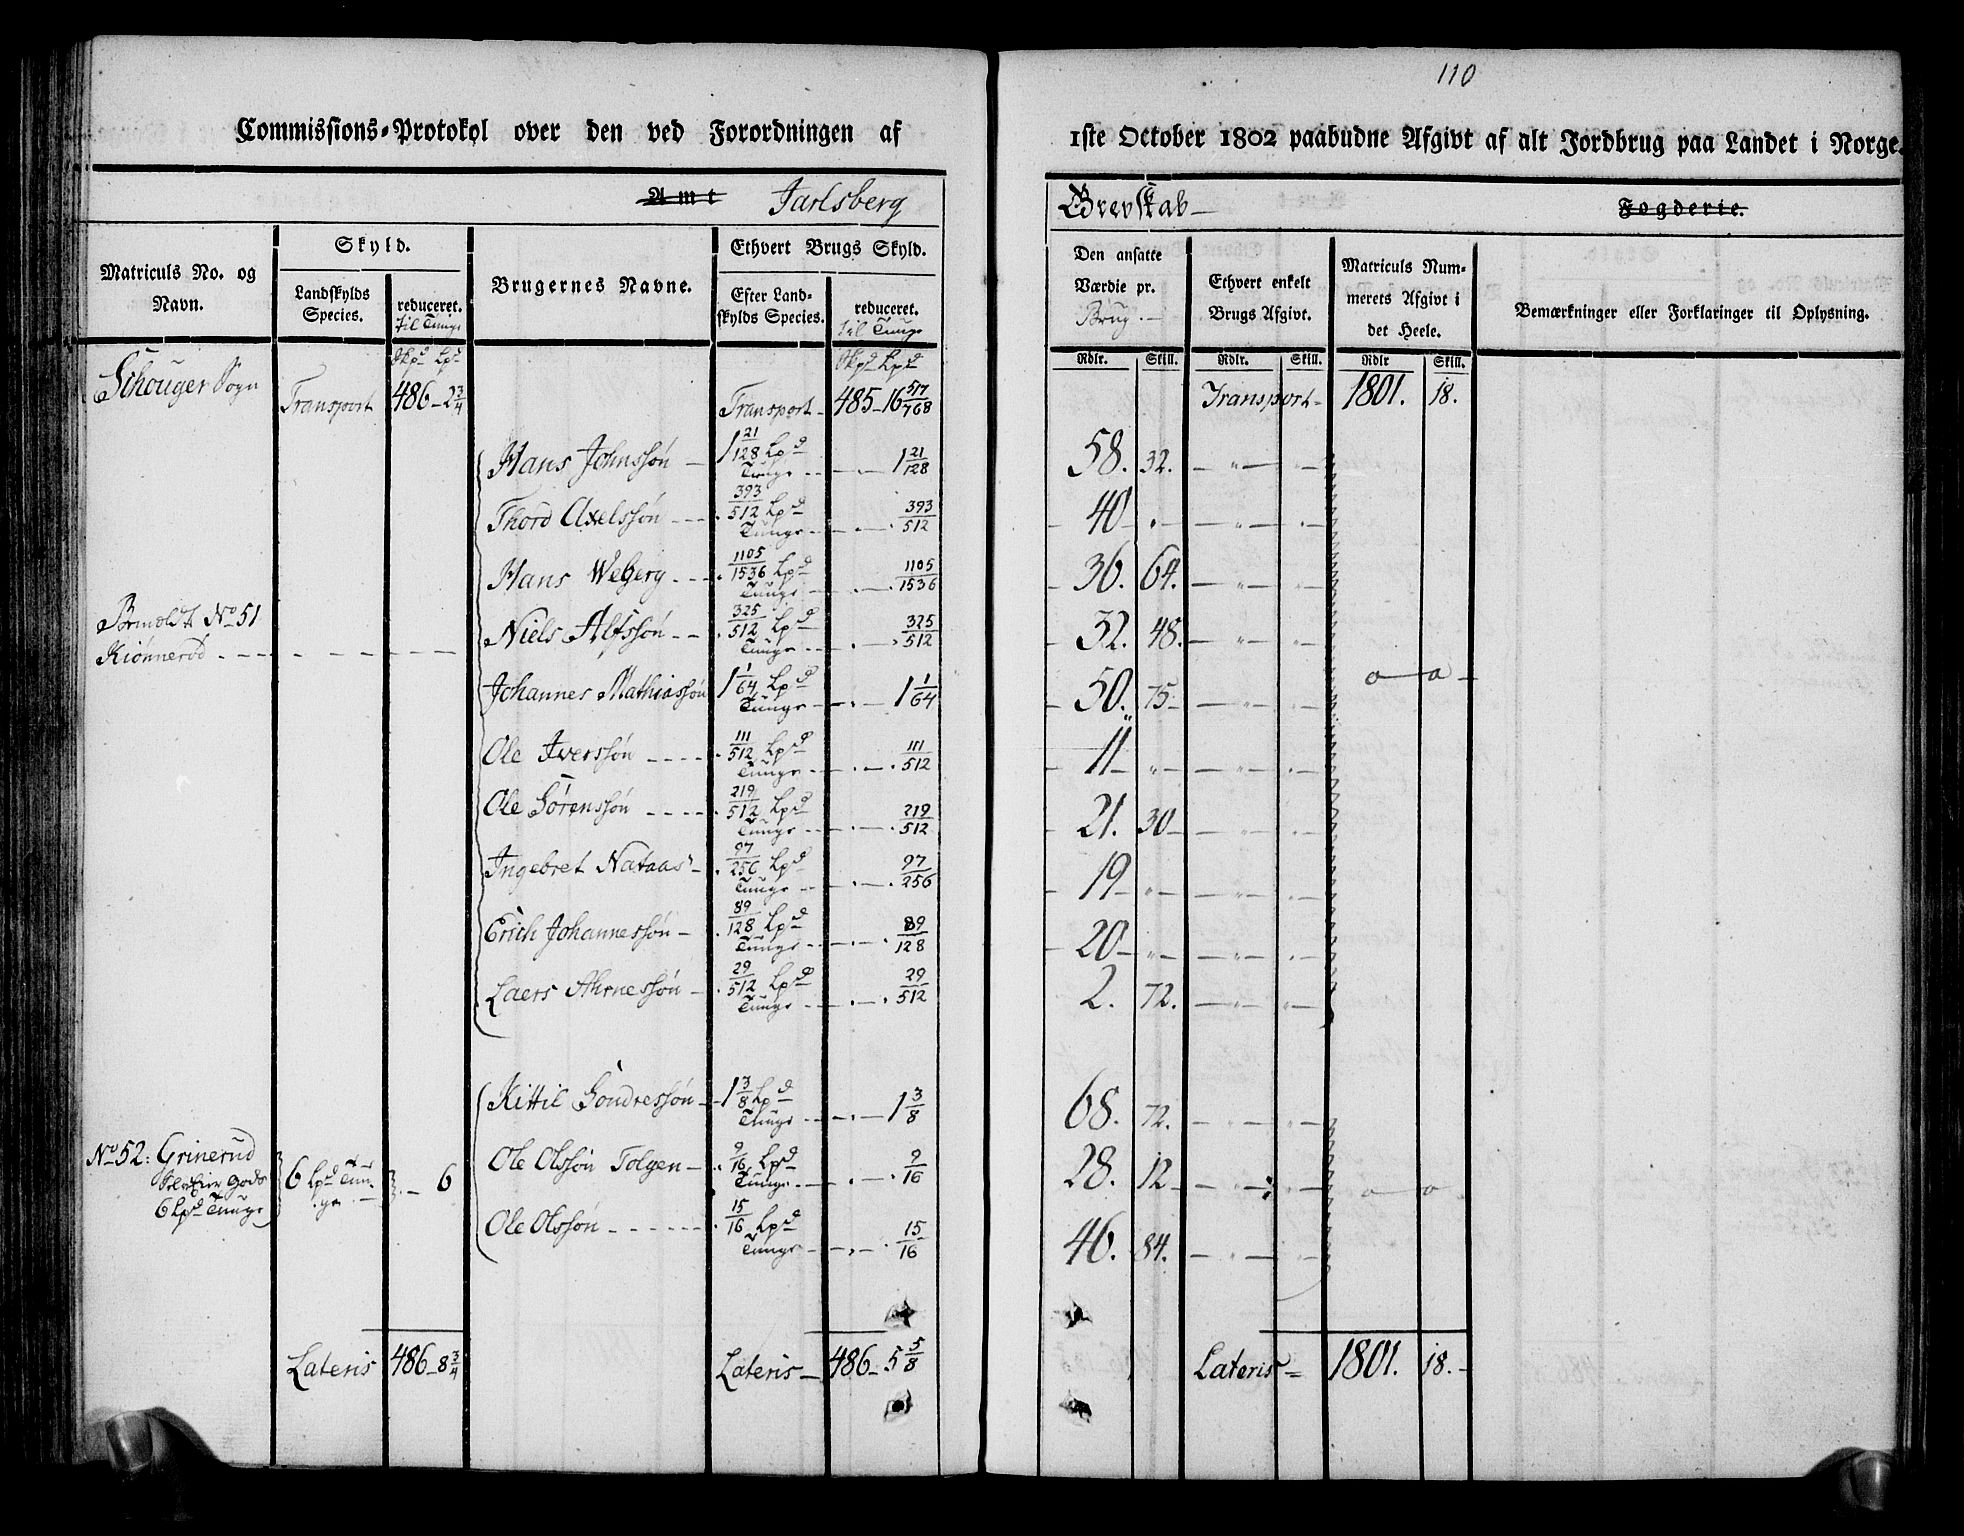 110
Commissions-Protokol over den ved Forordningen af
1ste October 1802 paabudne Afgivt af alt Jordbrug paa Landet i Norge.
Amt Jarlsberg
Grevskab Fogderie.
Matriculs No. og Navn.
Skyld.
Landskylds Species.
reduceret. til Tunge
Brugernes Navne.
Ethvert Brugs Skyld.
Efter Landskylds Species.
reduceret. til Tunge
Den ansatte Værdie pr. Brug.
Ethvert enkelt Brugs Afgivt.
Matriculs Nummerets Afgivt i det Heele.
Bemærkninger eller Forklaringer til Oplysning.
Skpd Lpd Skpd Lpd
Rdlr. Skill. Rdlr. Skill. Rdlr Skill.
Schouger Sogn Transport 486 - 2 3/4 Transport - 485 - 16 517/768 Transport - 1801. 18.
Hans Johnssøn - 1 21/128 Lpd Tunge - 1 21/128 58. 32.
Thord Axelssøn - 393/512 Lpd Tunge - 393/512 40 "
Hans Weberg - 1105/1536 Lpd Tunge - 1105/1536 36. 64.
No 51
Kiønnerød - Niels Alfssøn - 325/512 Lpd Tunge - 325/512 32. 48.
Johannes Mathiassøn 1 1/64 Lpd Tunge - 1 1/64 50. 75 - o o -
Ole Iverssøn - 111/512 Lpd Tunge - 111/512 11 - "
Ole Sørenssøn - 219/512 Lpd Tunge - 219/512 21. 30 -
Ingebret Nataas - 97/256 Lpd Tunge - 97/256 19 - "
Erich Johannessøn - 89/128 Lpd Tunge - 89/128 20 - "
Laers Ahrnessøn - 29/512 Lpd Tunge - 29/512 2. 72.
Kittil Gondressøn - 1 3/8 Lpd Tunge - 1 3/8 68. 72.
No 52: Grinerud 6 Lpd Tunge - 6 Ole Olssøn Tolgen - 9/16 Lpd Tunge - 9/16 28. 12 - o o
Gods
6 Lpd Tunge Ole Olssøn - 15/16 Lpd Tunge - 15/16 46. 84.
Lateris 486 - 8 3/4 Lateris - 486 - 5 5/8 Lateris - 1801. 18. -